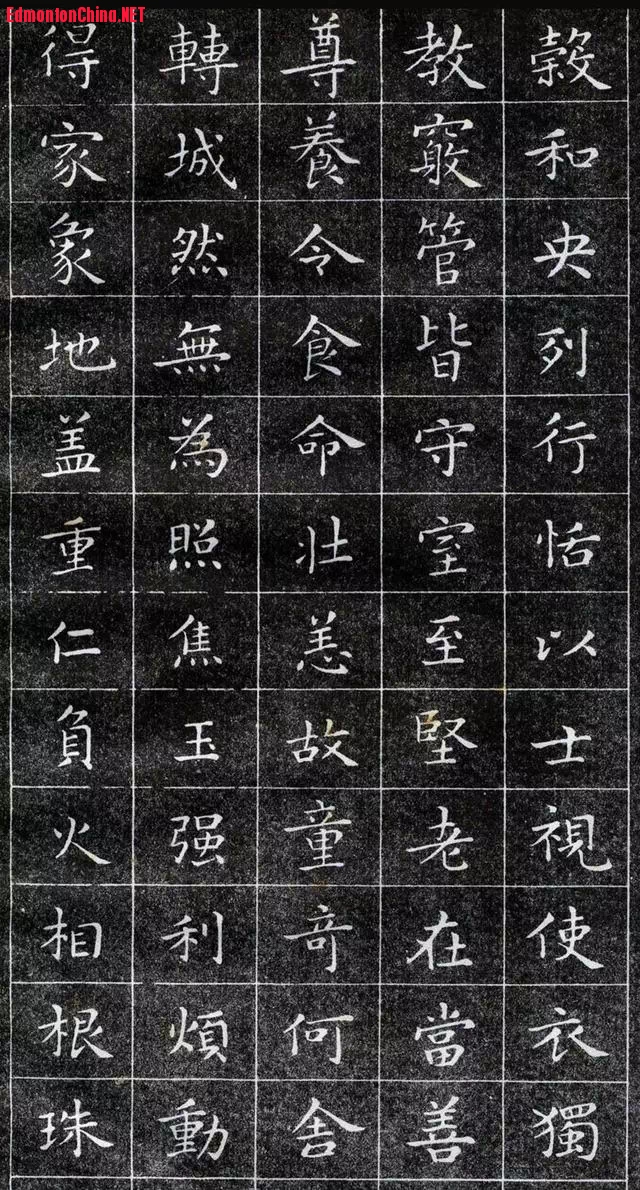 EdmontonChina.NET
穀和央列行恬以士視使衣獨
教窮管皆守室至堅老在當善
尊養令食命壯恙故童奇何舍
轉城然無為照焦玉强利煩動
得家象地盖重仁負火相根珠